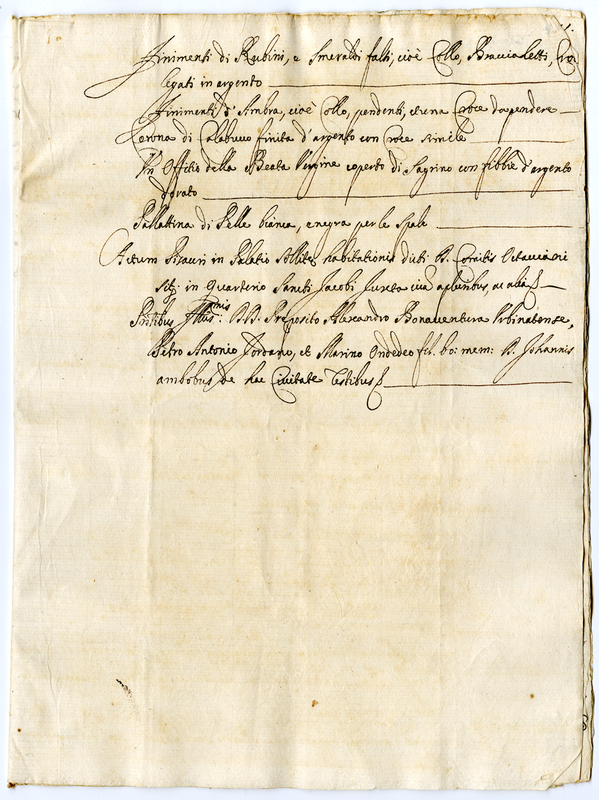 .1.
Finimenti di Rubini, e Smeraldi falsi, cioè Collo, Braccialetti, Cro
legati in argento
Finimenti d'Ambra, cioè Collo, pendenti, et una Croce da pendere
Corona di Calabucco finita d'argento con Croce simile
Un Offitio della Beata Vergine coperto di Sagrino con fibbie d'argento
dorato
Pallattina di Pelle bianca, e negra per le Spale
Actum Pisauri in Palatio Solitæ habitationis dicti D. Comitis Octaviani
sit. in Quarterio Sancti Jacobi Iuxta sua a pluribus, ac alia
Pntibus Illmis: DD. Preposito Alexandro Bonaventura Urbinatense,
Petro Antonio Jordano, et Marino Ondedeo fil. bo: mem: D. Johannis
ambobus de hac Civitate Testibus